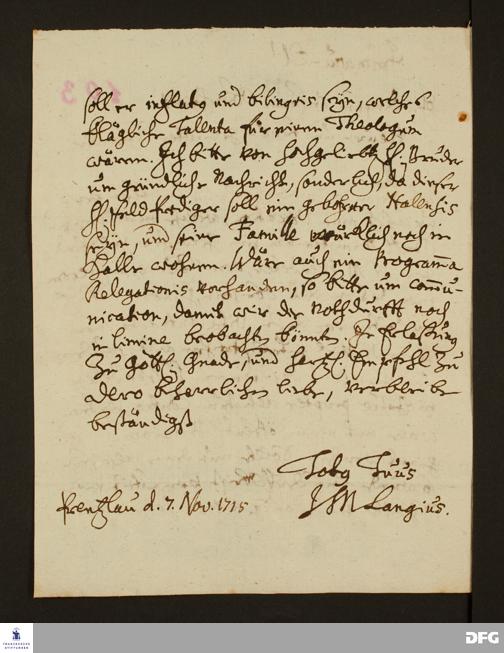 soll er inflatus und bilingvis seyn, welches
klägliche Talenta für einen Theologum
wären. Ich bitte von hochgeliebt. H. Bruder
um gründliche Nachricht, sonderlich, da dieser
H. Feldprediger soll ein gebohrner Hallensis
seyn, und seine Famille würklich noch in
Halle wohnen. Wäre auch ein Programma
Relegationis vorhanden, so bitte um commu-
nication, damit wir der Nothdurfft noch
in limine beobachten könnten. In Erlaßung
zu Göttl. Gnade, und hertzl. Empfehl. zu
dero beharrlichen liebe, verbleibe
beständigst
Totus Tuus
Prentzlau d. 7. Nov. 1715
JM Langius.
FRANCKESCHE
STIFTUNGEN
DFG